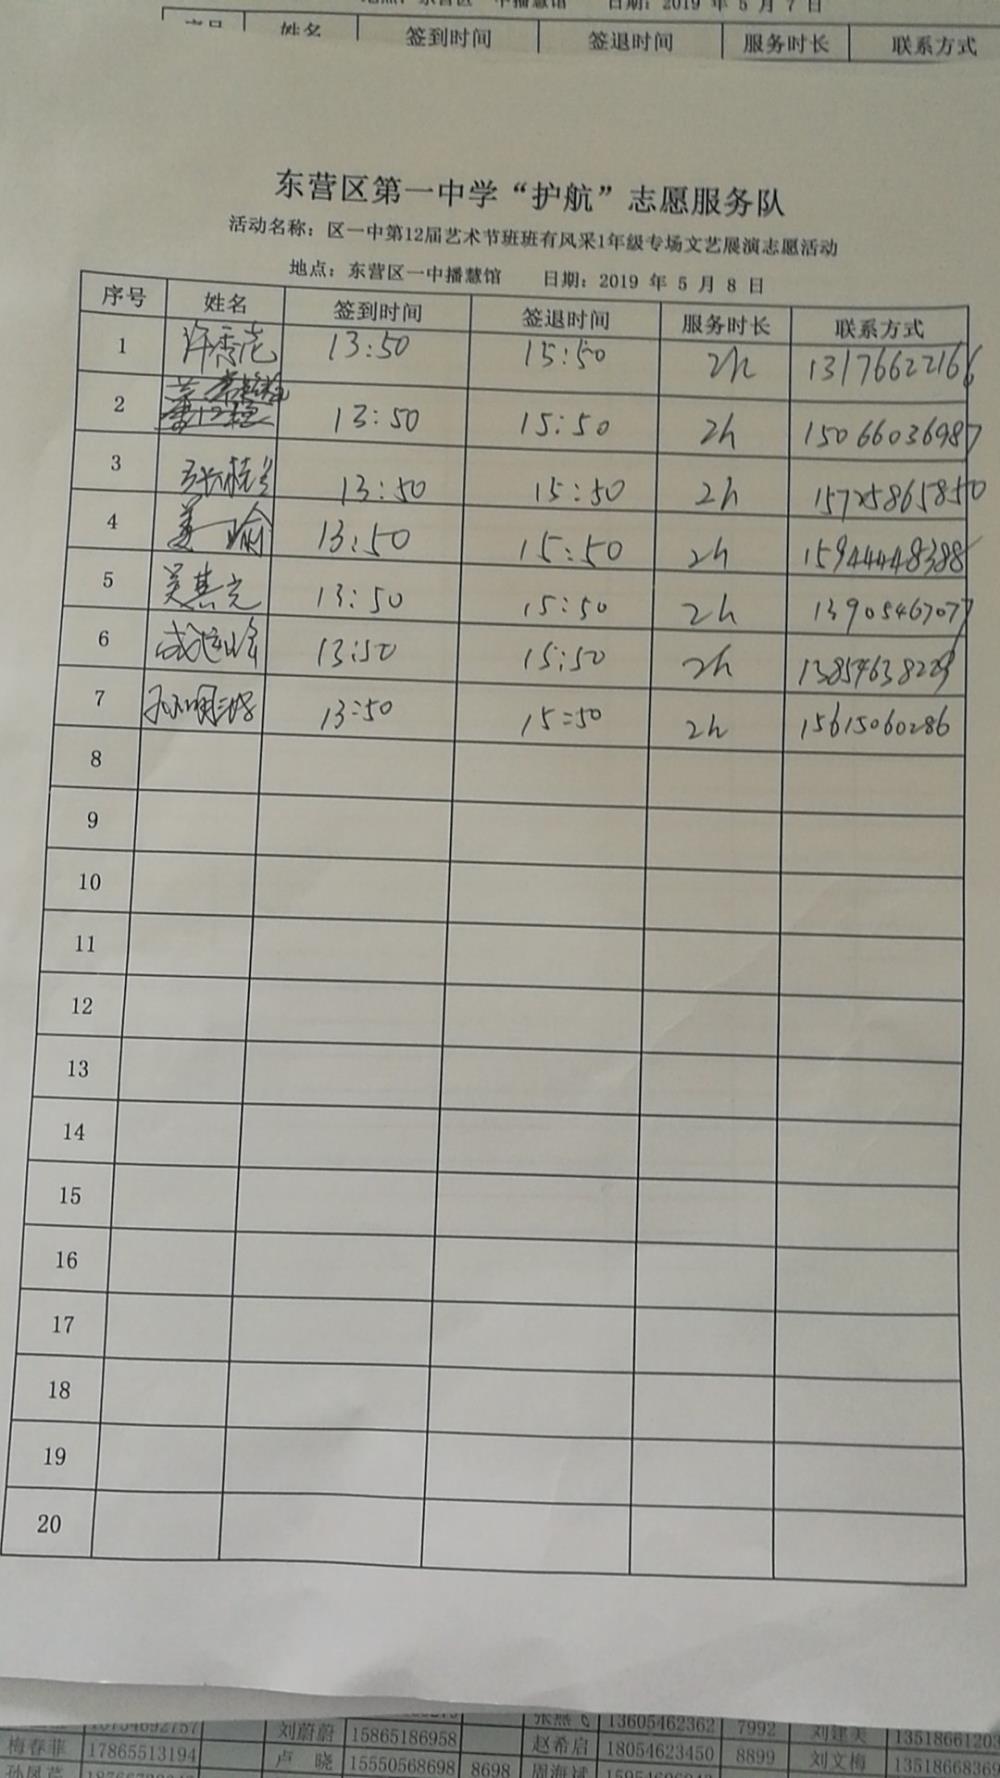 日期：2019 年 5 月 7 日
姓名 签到时间 签退时间 服务时长 联系方式
东营区第一中学“护航”志愿服务队
活动名称：区一中第12届艺术节班班有风采1年级专场文艺展演志愿活动
地点：东营区一中播慧馆 日期：2019 年 5 月 8 日
序号 姓名 签到时间 签退时间 服务时长 联系方式
1 13:50 15:50 2h 13176622166
2 13:50 15:50 2h 15066036987
3 13:50 15:50 2h 15725865850
4 姜瑜 13:50 15:50 2h 15944448388
5 吴其光 13:50 15:50 2h 13905467077
6 13:50 15:50 2h 13854638229
7 13:50 15:50 2h 15615060286
8
9
10
11
12
13
14
15
16
17
18
19
20
刘蔚蔚 15865186958 张燕飞 13605462362 7992 刘建美 13518661203
梅春菲 17865513194 赵希启 18054623450 8899 刘文梅 13518668369
孙凤芹 卢晓 15550568698 8698 周海斌